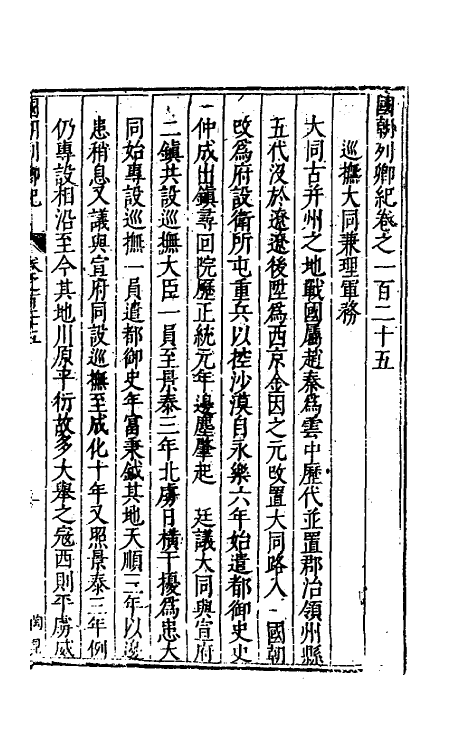 國朝列卿紀卷之一百二十五
巡撫大同兼理軍務
大同古并州之地戰國屬趙秦為雲中歷代並置郡治領州縣
五代沒於遼遼後陞為西京金因之元改置大同路入 國朝
改為府設衛所屯重兵以控沙漠自永樂六年始遣都御史史
仲成出鎮尋回院歷正統元年邊塵肇起 廷議大同與宣府
二鎮共設巡撫大臣一員至景泰三年北虜日橫干擾為患大
同始專設巡撫一員遣都御史年富秉鉞其地天順二年以邊
患稍息又議與宣府同設巡撫至成化十年又照景泰三年例
仍專設相沿至今其地川原平衍故多大舉之寇西則平虜威
國朝列卿紀
卷之一百二十五